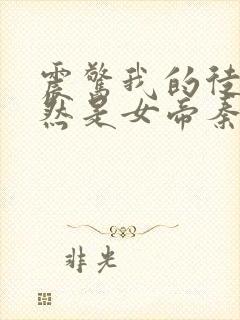 震惊我的徒
然是女帝秦
非光